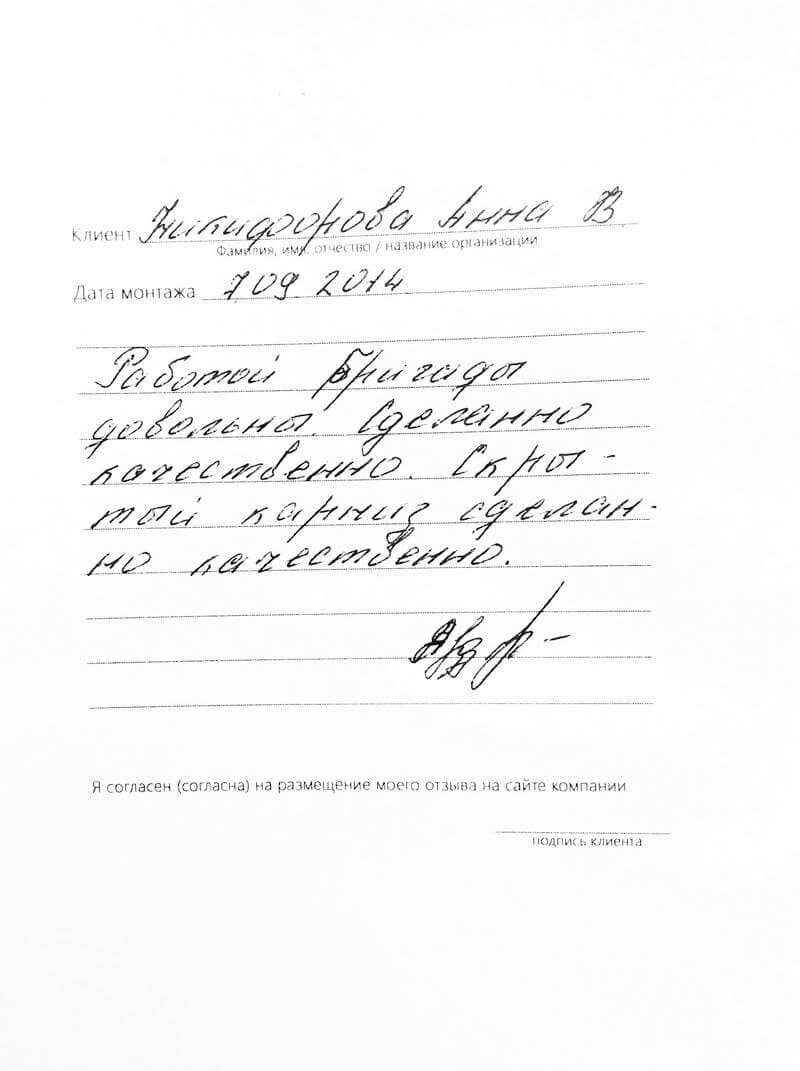 Клиент Никифорова Анна В
Фамилия, имя, отчество / название организации
Дата монтажа 7 09 2014
Работой бригады
довольны. Сделанно
качественно. Скры-
тый карниз сделан-
но качественно.
Я согласен (согласна) на размещение моего отзыва на сайте компании
подпись клиента